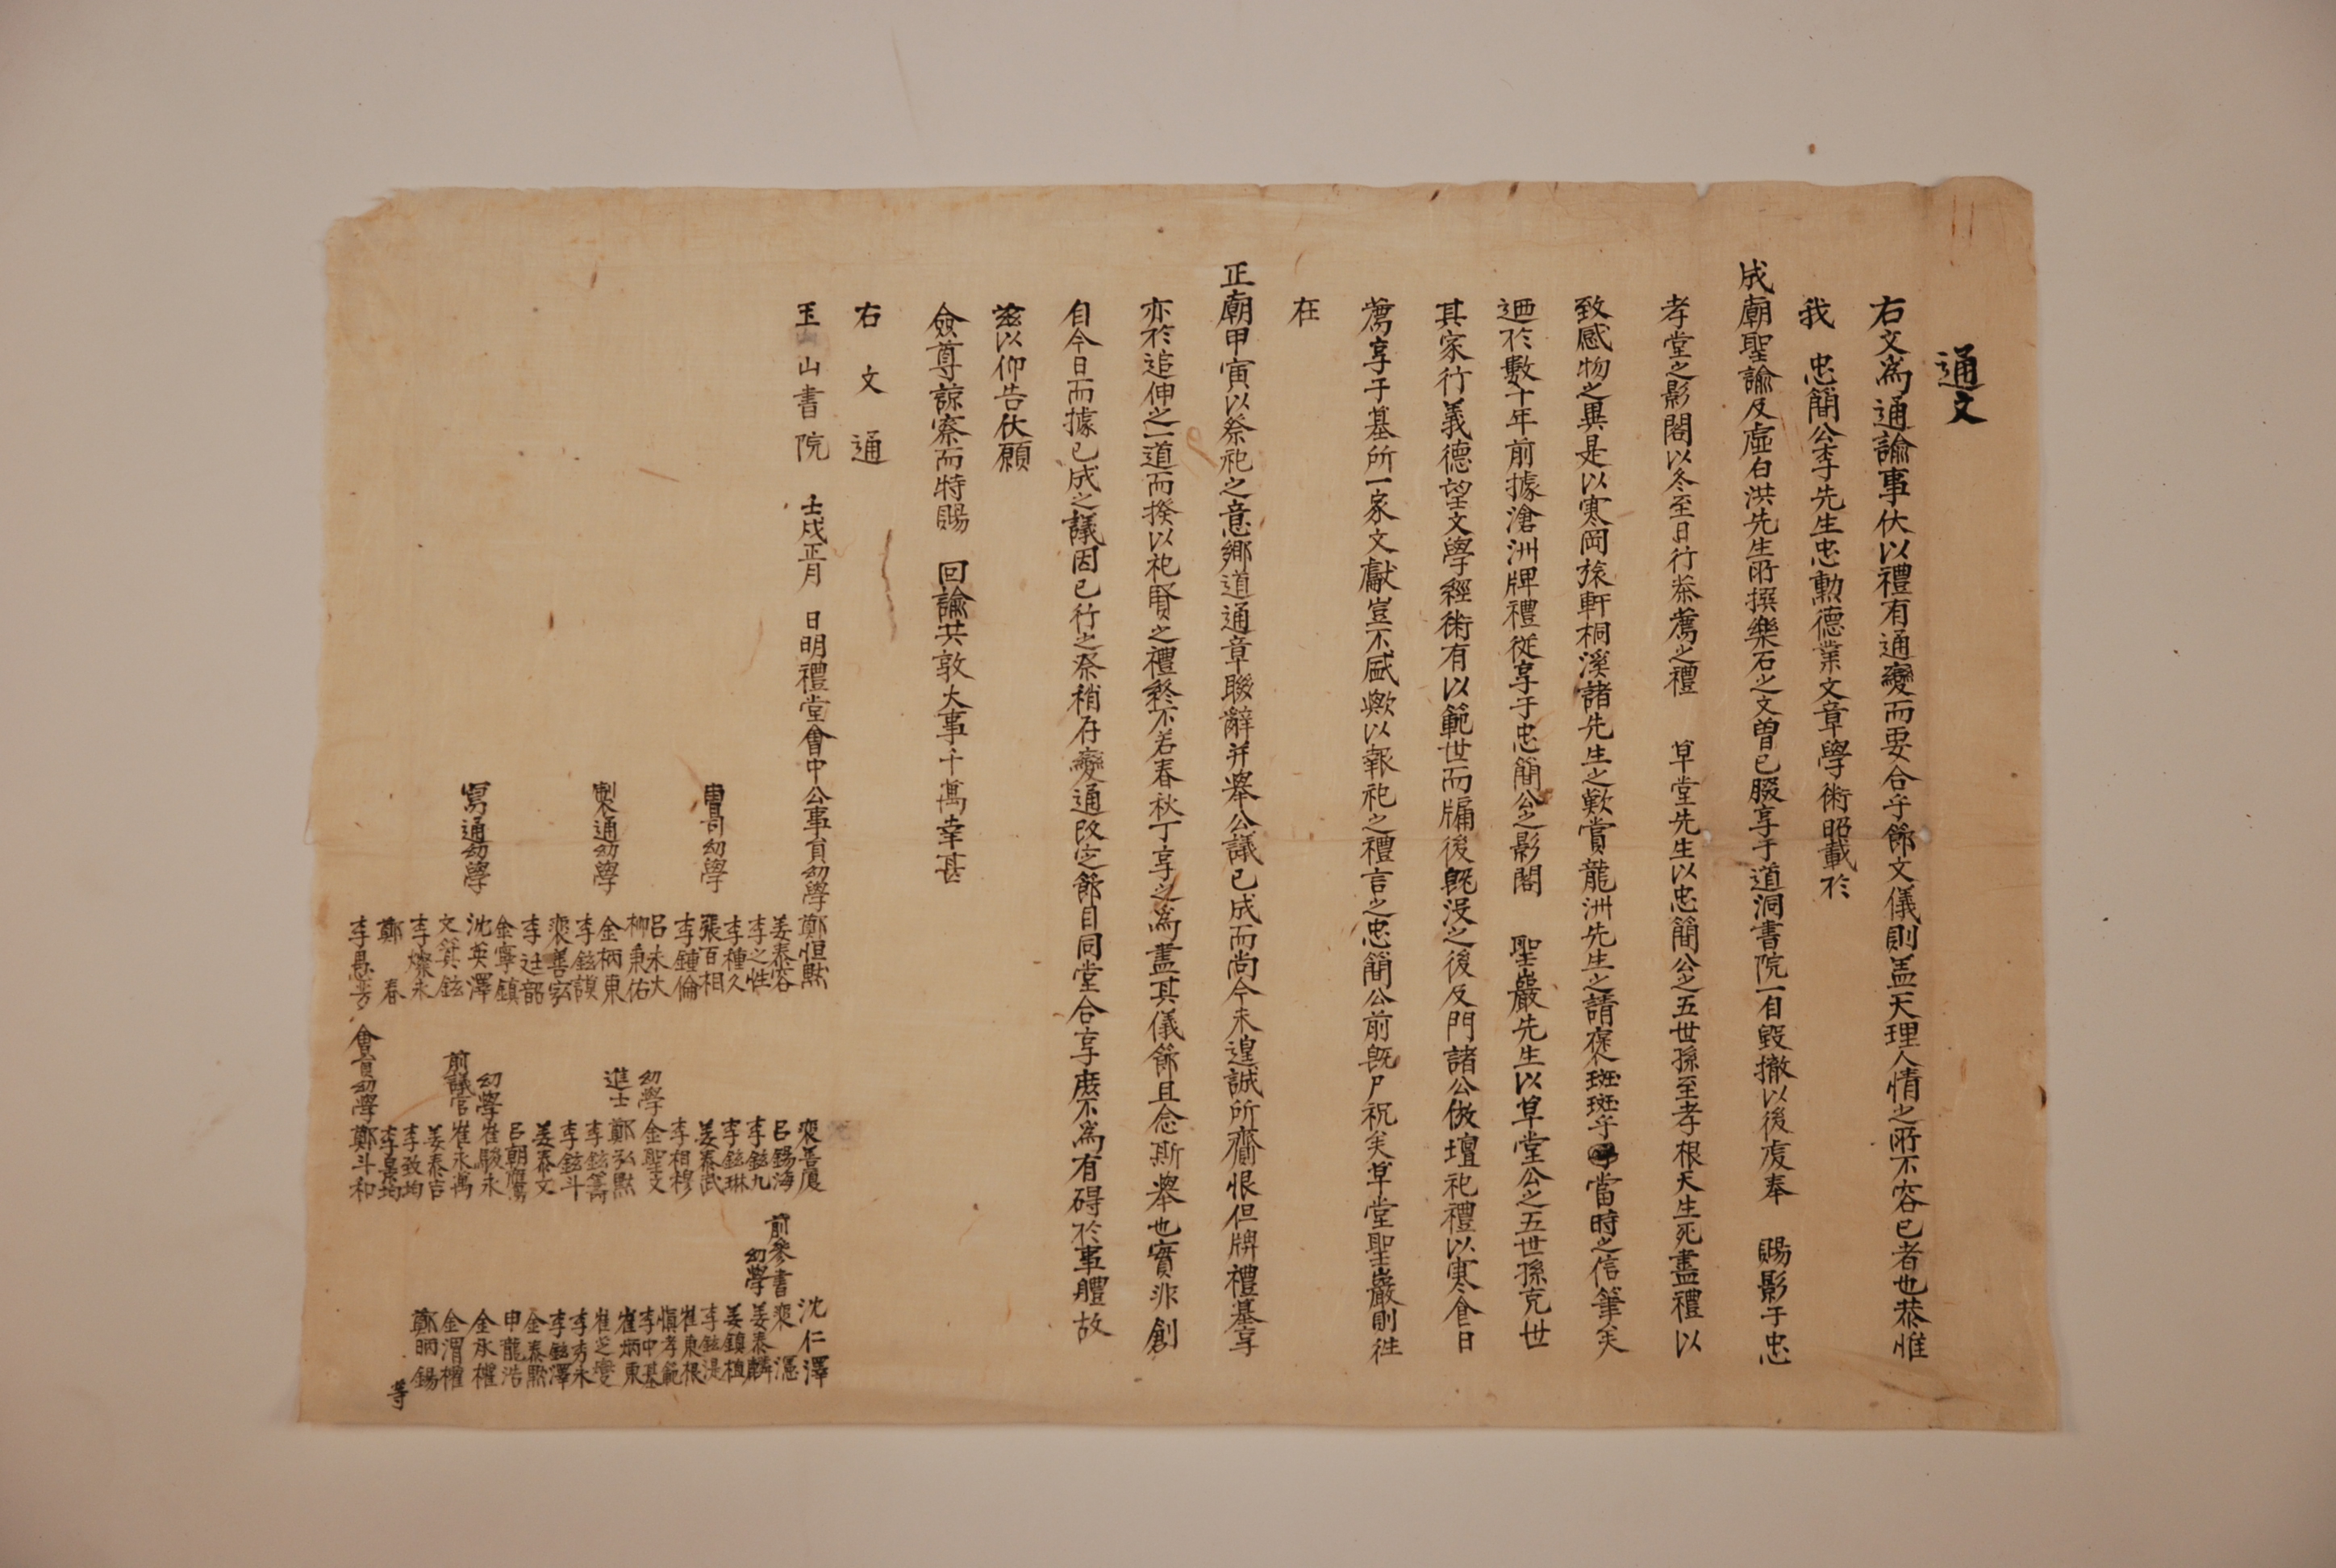 通文
右文爲通諭事伏以禮有通變而要合乎節文儀則盖天理人情之所不容已者也恭惟
我 忠簡公李先生忠勳德業文章學術昭載於
成廟聖諭及虛白洪先生所撰樂石之文曾已腏享于道洞書院一自毁撤以後虔奉 賜影于忠
孝堂之影閣以冬至日行茶薦之禮 草堂先生以忠簡公之五世孫至孝根天生死盡禮以
致感物之異是以寒岡旅軒桐溪諸先生之歎賞龍洲先生之請褒斑斑乎當時之信筆矣
迺於數十年前據滄洲牌禮從享于忠簡公之影閣 聖巖先生以草堂公之五世孫克世
其家行義德望文學經術有以範世而牖後旣沒之後及門諸公倣壇祀禮以寒食日
薦享于墓所一家文獻豈不盛歟以報祀之禮言之忠簡公前旣尸祝矣草堂聖巖則徃
在
正廟甲寅以祭祀之意鄉道通章聯辭并擧公議已成而尙今未遑誠所齎恨但牌禮墓享
亦於追伸之一道而揆以祀賢之禮終不若春秋丁享之爲盡其儀節且念斯擧也實非創
自今日而據已成之議因已行之祭稍存變通改定節目同堂合享庶不爲有碍於事體故
玆以仰告伏願
僉尊諒察而特賜 回諭共敦大事千萬幸甚
右文通
玉山書院 壬戌正月 日明禮堂會中公事員幼學鄭恒默
姜泰容
李之性
李種久
曺司幼學 張百相
李鍾倫
呂未大
柳秉佑
製通幼學 金柄東
李鉉謨
裵善宖
李廷韶
金寧鎭
寫通幼學 沈英澤
文箕鉉
李燦永
鄭 春
李惪芳
裵善廈
呂錫海
李鉉九
李鉉琳
姜泰武
李相穆
幼學 金聖文
進士 鄭弘默
李鉉篤
李鉉斗
姜泰文
呂朝鷹
幼學 崔駿永
前議官 崔永萬
姜泰吉
李致均
李昌均
會員幼學 鄭斗和
沈仁澤
前參書 裵 濦
幼學 姜泰麟
姜鎭植
李鉉湜
崔東根
愼孝範
李中基
崔炳東
崔芝燮
李秀永
李鉉澤
金泰默
申龍浩
金永權
金渭權
鄭昞錫
等